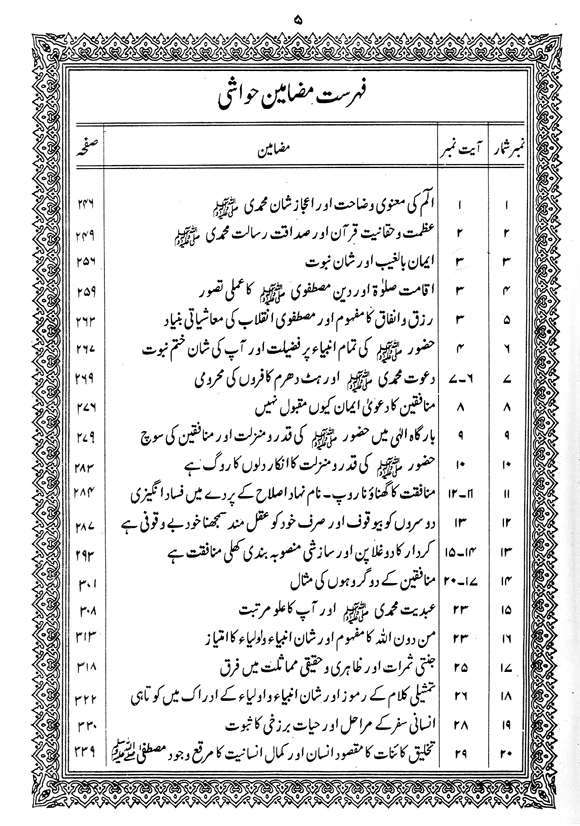 ۵
فہرست مضامین حواشی
نمبر شمار آیت نمبر مضامین صفحہ
۱ ۱ الٓم کی معنوی وضاحت اور اعجاز شان محمدی ﷺ ۲۴۶
۲ ۲ عظمت و حقانیت قرآن اور صداقت رسالت محمدی ﷺ ۲۴۹
۳ ۳ ایمان بالغیب اور شان نبوت ۲۵۶
۴ ۳ اقامت صلوٰۃ اور دین مصطفوی ﷺ کا عملی تصور ۲۵۹
۵ ۳ رزق و انفاق کا مفہوم اور مصطفوی انقلاب کی معاشیاتی بنیاد ۲۶۲
۶ ۴ حضور ﷺ کی تمام انبیاء پر فضیلت اور آپ کی شان ختم نبوت ۲۶۷
۷ ۶-۷ دعوت محمدی ﷺ اور ہٹ دھرم کافروں کی محرومی ۲۶۹
۸ ۸ منافقین کا دعویٰ ایمان کیوں مقبول نہیں ۲۷۶
۹ ۹ بارگاہ الٰہی میں حضور ﷺ کی قدر و منزلت اور منافقین کی سوچ ۲۷۹
۱۰ ۱۰ حضور ﷺ کی قدر و منزلت کا انکار دلوں کا روگ ہے ۲۸۳
۱۱ ۱۱-۱۲ منافقت کا گھناؤنا روپ - نام نہاد اصلاح کے پردے میں فساد انگیزی ۲۸۴
۱۲ ۱۳ دوسروں کو بیوقوف اور صرف خود کو عقل مند سمجھنا خود بے وقوفی ہے ۲۸۷
۱۳ ۱۴-۱۵ کردار کا دوغلا پن اور سازشی منصوبہ بندی کھلی منافقت ہے ۲۹۳
۱۴ ۱۷-۲۰ منافقین کے دو گروہوں کی مثال ۳۰۱
۱۵ ۲۳ عبدیت محمدی ﷺ اور آپ کا علو مرتبت ۳۰۸
۱۶ ۲۳ من دون اللہ کا مفہوم اور شان انبیاء و اولیاء کا امتیاز ۳۱۳
۱۷ ۲۵ جنتی ثمرات اور ظاہری و حقیقی مماثلت میں فرق ۳۱۸
۱۸ ۲۶ تمثیلی کلام کے رموز اور شان انبیاء و اولیاء کے ادراک میں کوتاہی ۳۲۲
۱۹ ۲۸ انسانی سفر کے مراحل اور حیات برزخی کا ثبوت ۳۳۰
۲۰ ۲۹ تخلیق کائنات کا مقصود انسان اور کمال انسانیت کا مرقع وجود مصطفیٰ ﷺ ۳۳۹